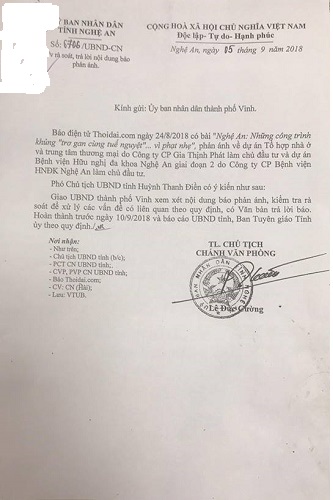 ỦY BAN NHÂN DÂN
TỈNH NGHỆ AN
CỘNG HOÀ XÃ HỘI CHỦ NGHĨA VIỆT NAM
Độc lập- Tự do- Hạnh phúc
Số: 6706/UBND-CN
Nghệ An, ngày 05 tháng 9 năm 2018
rà soát, trả lời nội dung báo
phản ánh.
Kính gửi: Ủy ban nhân dân thành phố Vinh.
Báo điện tử Thoidai.com ngày 24/8/2018 có bài "Nghệ An: Những công trình
khủng "trơ gan cùng tuế nguyệt"... vì phạt nhẹ", phản ánh về dự án Tổ hợp nhà ở
và trung tâm thương mại do Công ty CP Gia Thịnh Phát làm chủ đầu tư và dự án
Bệnh viện Hữu nghị đa khoa Nghệ An giai đoạn 2 do Công ty CP Bệnh viện
HNĐK Nghệ An làm chủ đầu tư.
Phó Chủ tịch UBND tỉnh Huỳnh Thanh Điền có ý kiến như sau:
Giao UBND thành phố Vinh xem xét nội dung báo phản ánh, kiểm tra rà
soát để xử lý các vấn đề có liên quan theo quy định, có Văn bản trả lời báo.
Hoàn thành trước ngày 10/9/2018 và báo cáo UBND tỉnh, Ban Tuyên giáo Tỉnh
ủy theo quy định./.
Nơi nhận:
- Như trên;
- Chủ tịch UBND tỉnh (b/c);
- PCT CN UBND tỉnh;
- CVP, PVP CN UBND tỉnh;
- Báo Thoidai.com;
- CV: CN (Hải);
- Lưu: VTUB.
TL. CHỦ TỊCH
CHÁNH VĂN PHÒNG
Lê Đức Cường